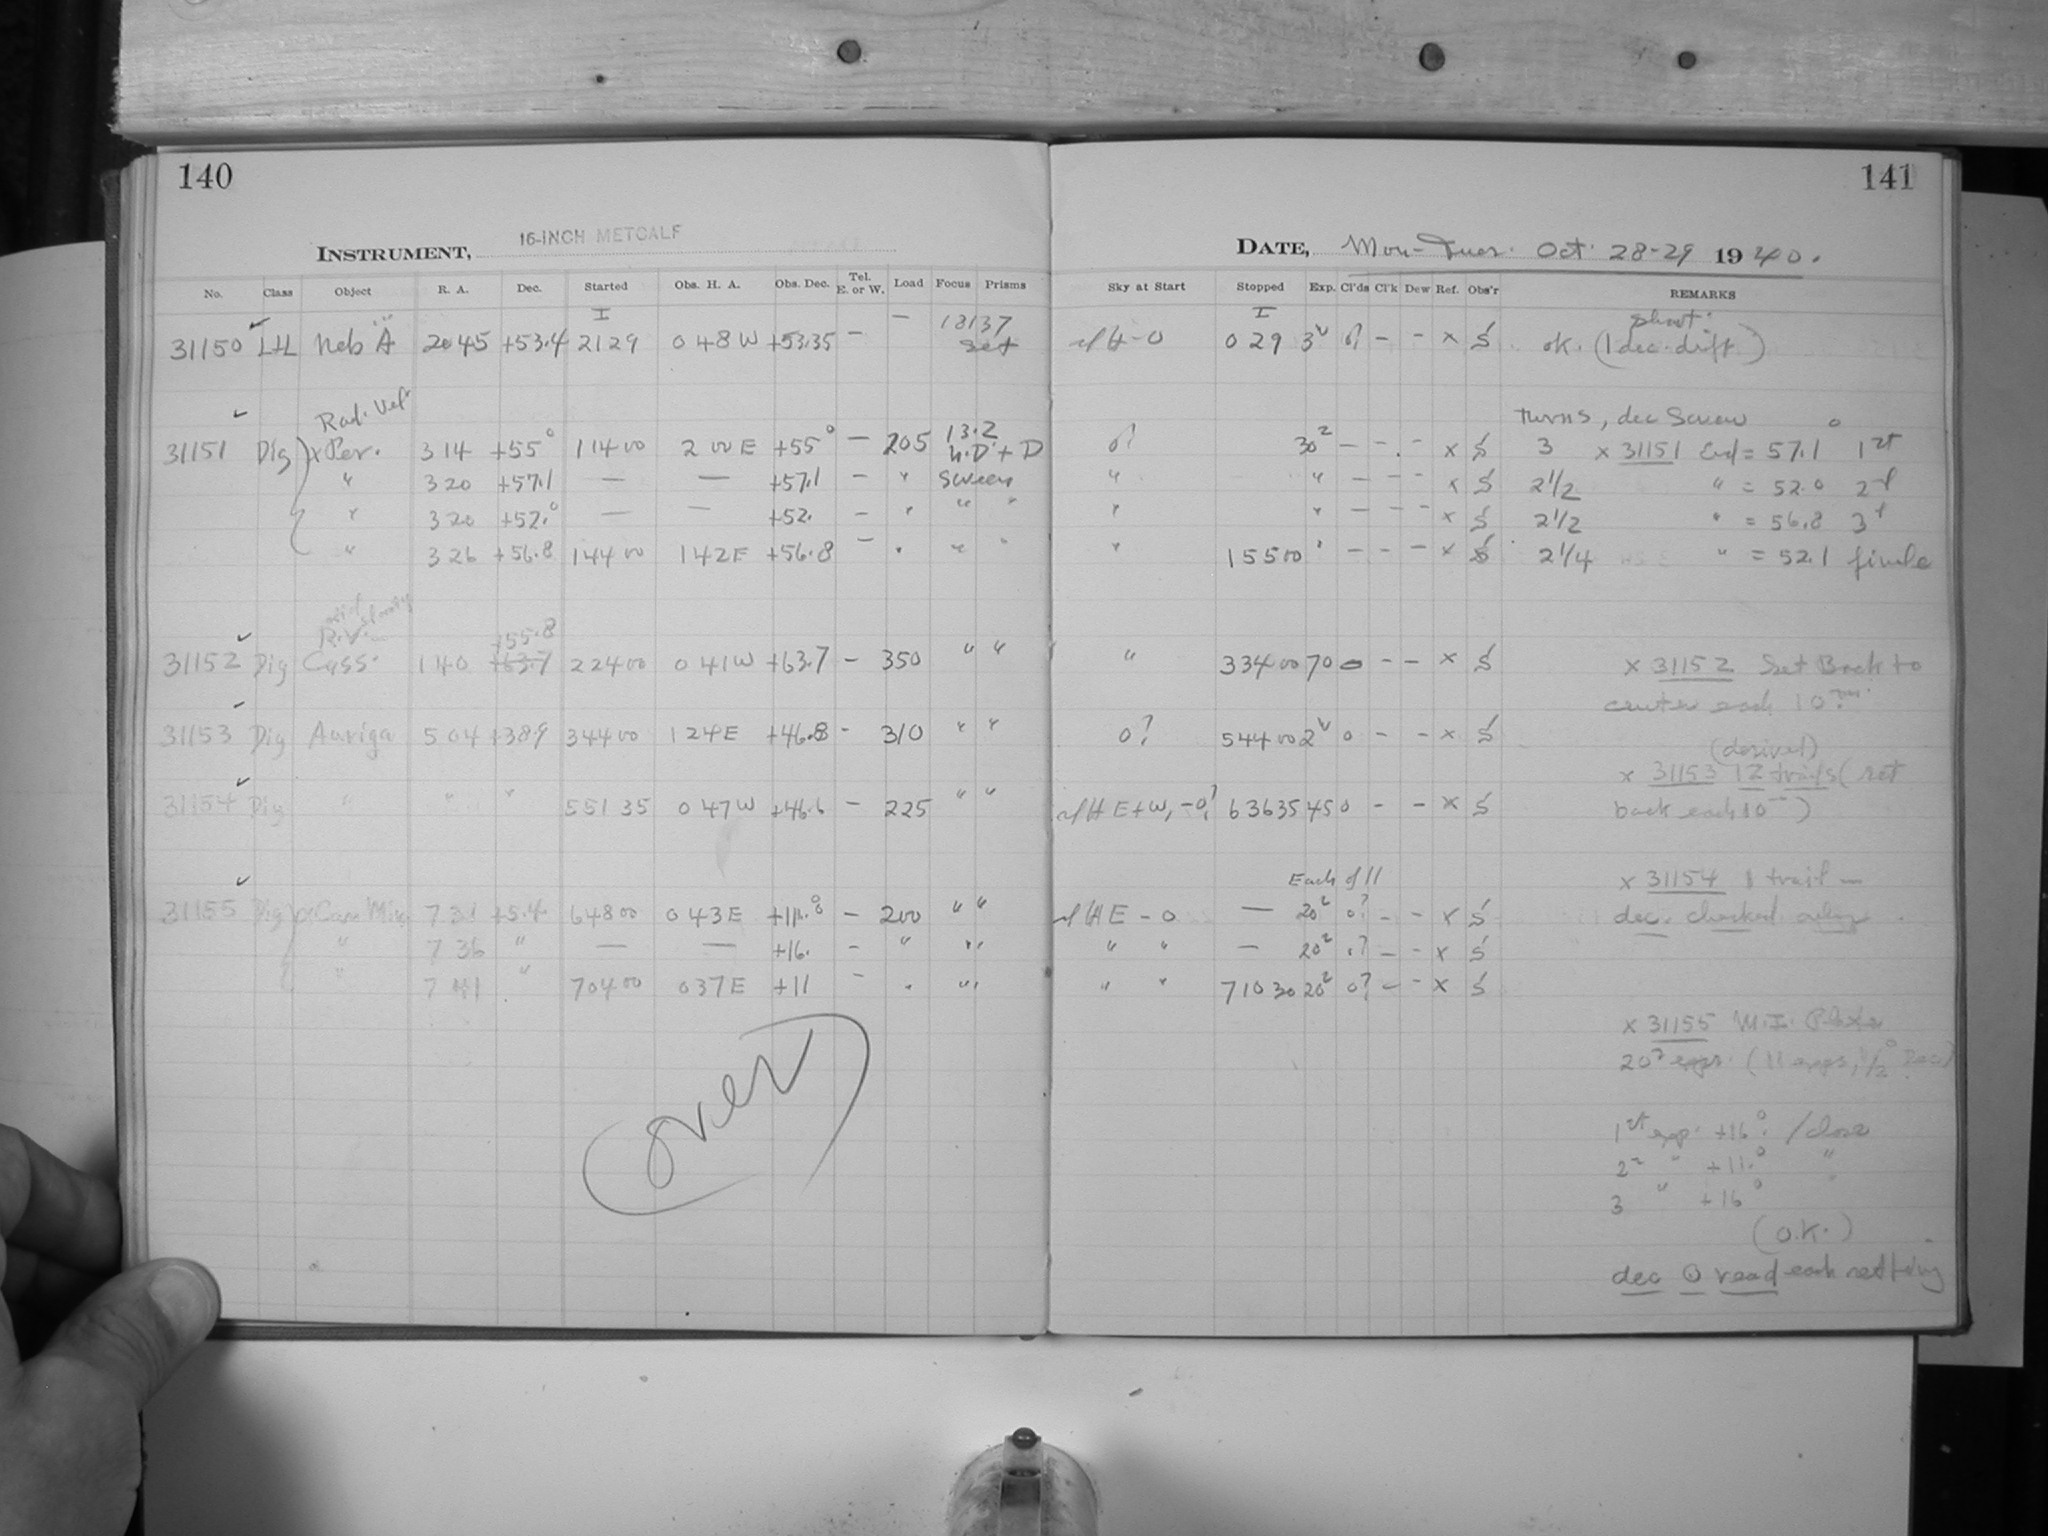 140
INSTRUMENT, 16-INCH METCALF
No. Class Object R. A. Dec. Started Obs. H. A. Obs. Dec. Tel. E. or W. Load Focus Prisms
31150 LHL Neb A 2045 +53.4 I 2129 0 48 W +53.35 — — 13137 Set
Rad. Vel.
31151 Dig x Per. 3 14 +55° 1 14 00 2 00 E +55° — 205 13.2 N.D. + D
" 3 20 +57.1 — — +57.1 — " Screen
" 3 20 +52.° — — +52. — " " "
" 3 26 +56.8 1 44 00 1 42 E +56.8 — " " "
R.V.
+55.8
31152 Dig Cass. 1 40 +63.7 2 24 00 0 41 W +63.7 — 350 " "
31153 Dig Auriga 5 04 +38.9 3 44 00 1 24 E +46.8 - 310 " "
31154 Dig " " " 5 51 35 0 47 W +46.6 — 225 " "
31155 Dig α Can Min 7 31 +5.4 6 48 00 0 43 E +11.° — 200 " "
" 7 36 " — — +16. — " "
" 7 41 " 7 04 00 0 37 E +11 — " "
(over)
141
DATE, Mon-Tues. Oct. 28-29 1940.
Sky at Start Stopped Exp. Cl'ds Cl'k Dew Ref. Obs'r REMARKS
H-0 I 0 29 3 0? — - x S ok. (1 dec. drift)
turns, dec Screw
0? 30 — — - x S 3 x 31151 End = 57.1 1st
" " — — - x S 2 1/2 " = 52.0 2d
" " — — - x S 2 1/2 " = 56.8 3d
" 1 55 00 " — — — x S 2 1/4 " = 52.1 finale
" 3 34 00 70 0 - — x S x 31152 Set Back to
center each 10 m.
0? 5 44 00 2 0 - - x S
(desired)
x 31153 12 trails (set
H E + W, -0? 6 36 35 45 0 - — x S back each 10 m)
Each of 11
x 31154 1 trail —
H E - 0 — 20 0? — - x S dec. checked only
" " — 20 0? — - x S
" " 7 10 30 20 0? — - x S
x 31155 M.I. Plate
20 exps. (11 exps, 1/2° Dec)
1st exp. +16.° / close
2d " +11.° "
3 " +16° "
(O.K.)
dec ⊙ read each setting